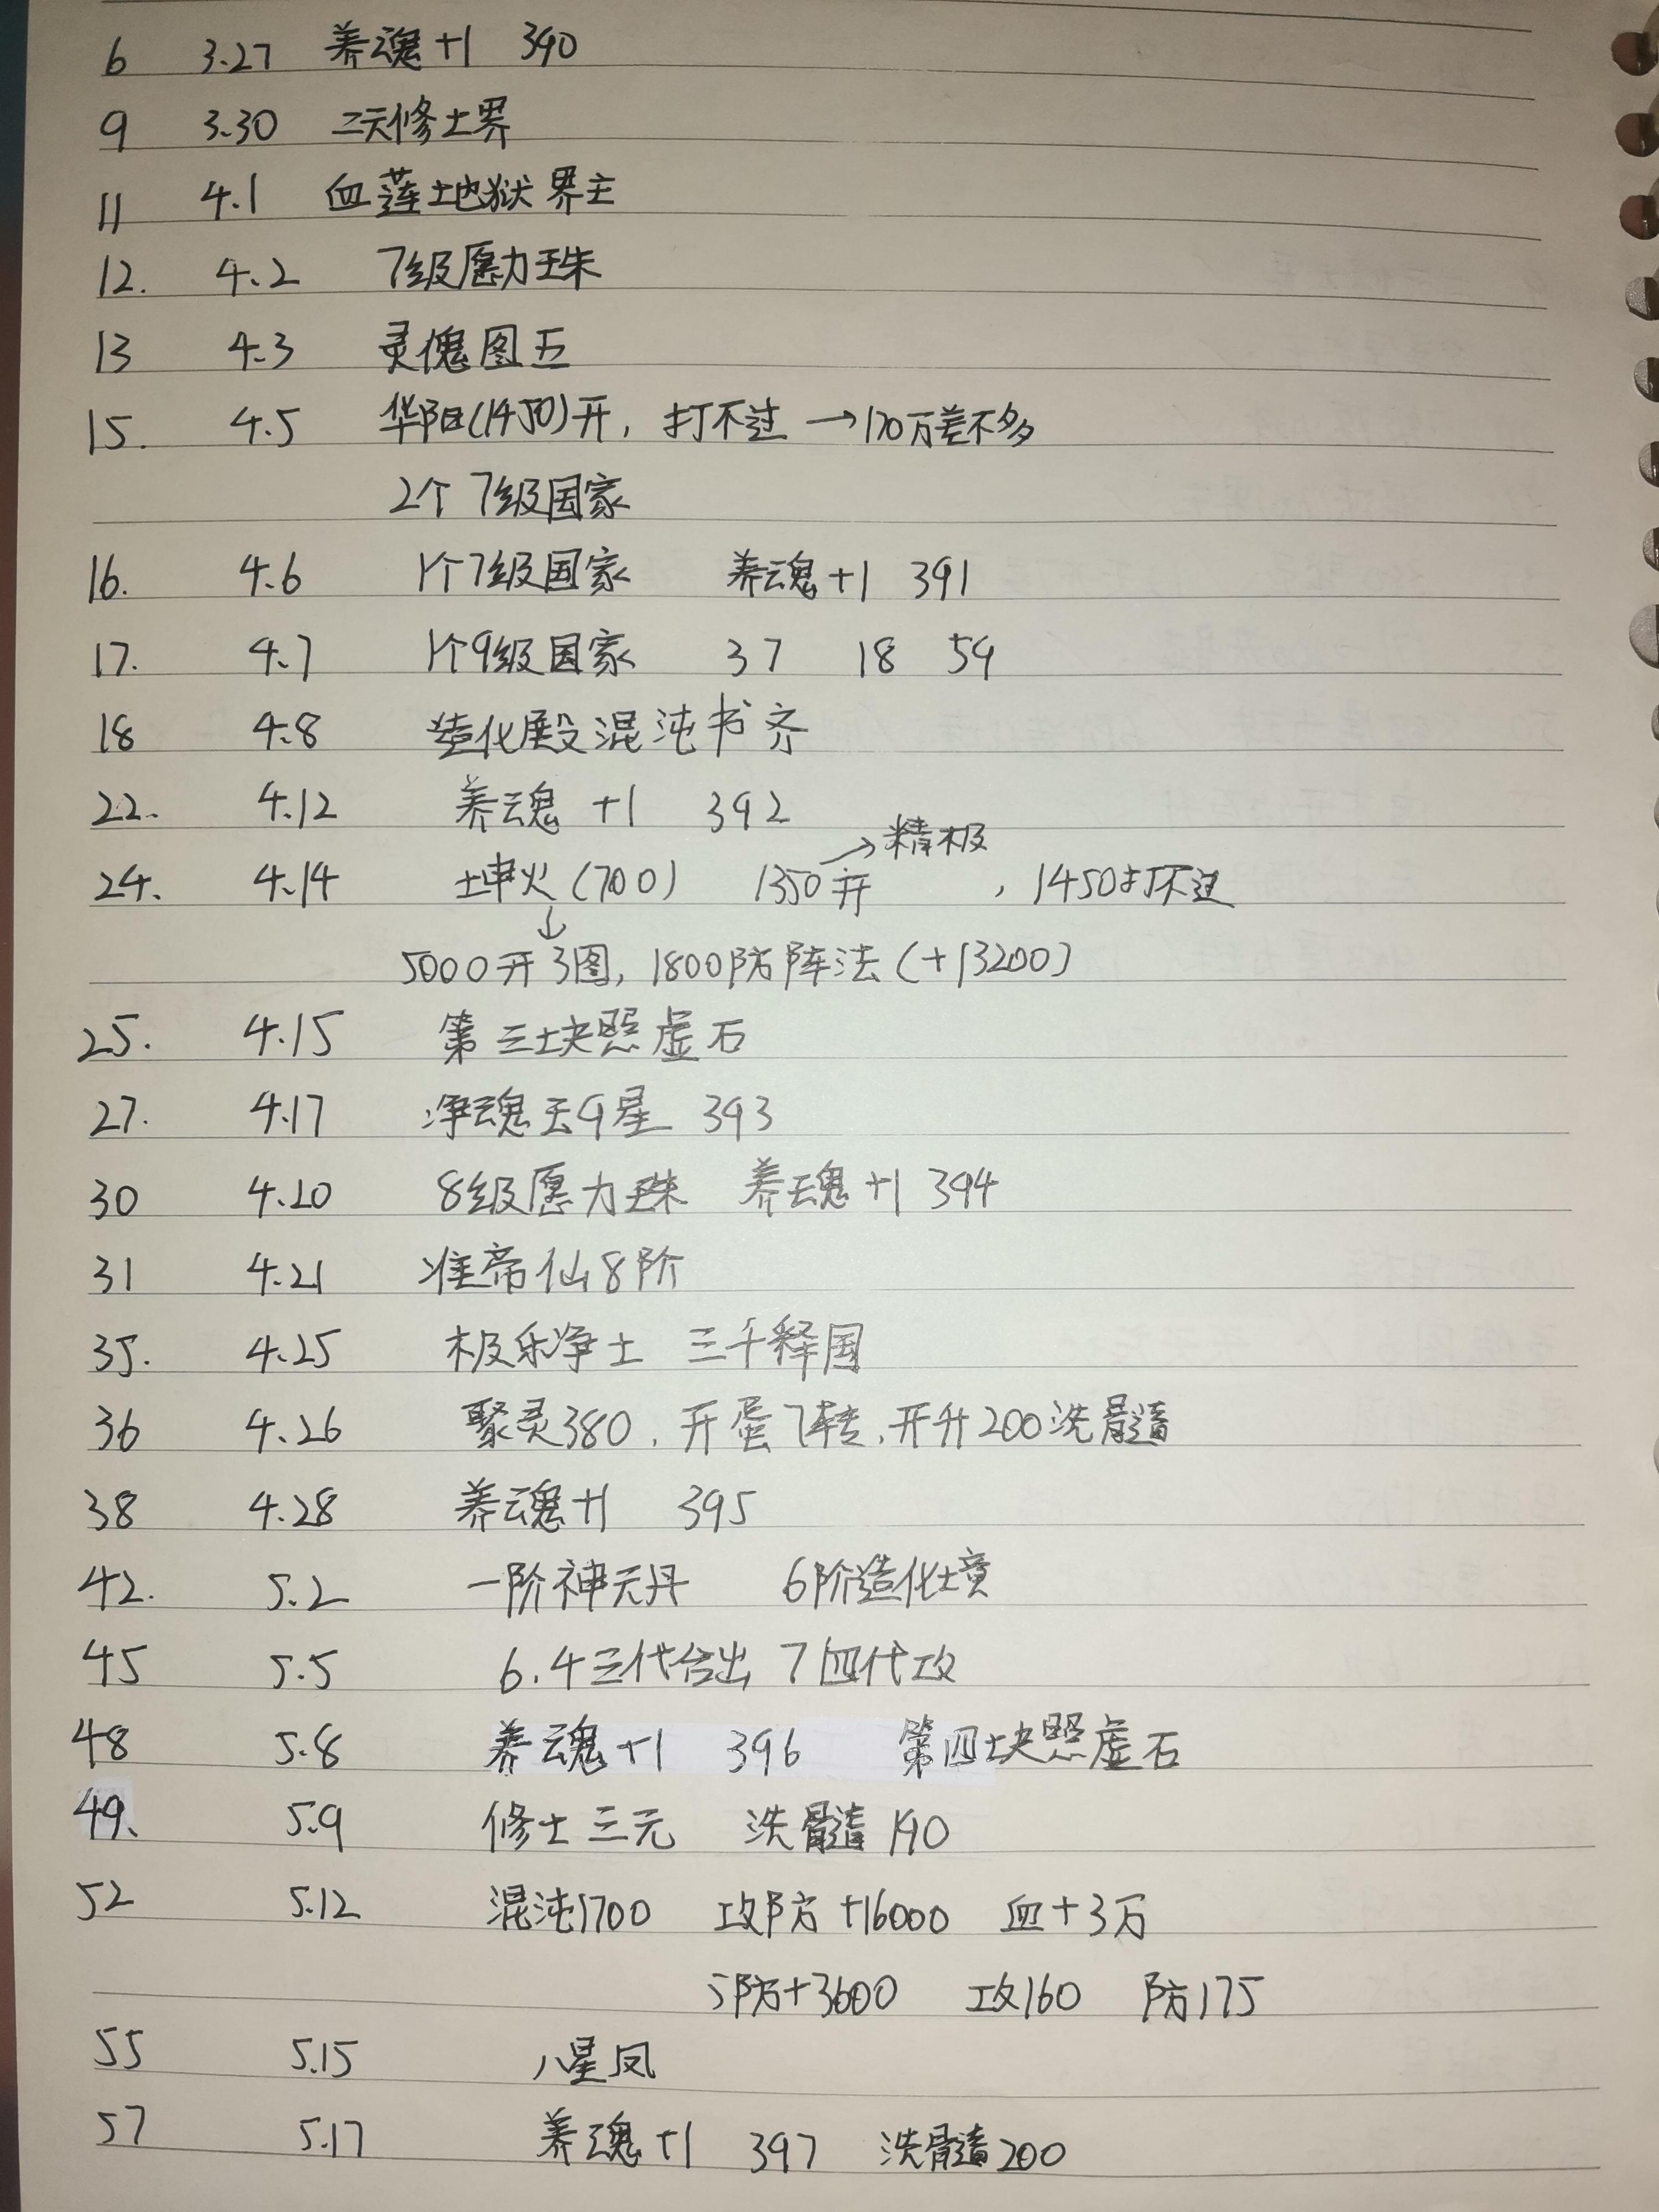 6 3.27 养魂+1 390
9 3.30 三天修士界
11 4.1 血莲地狱界主
12. 4.2 7级愿力珠
13 4.3 灵傀图五
15. 4.5 华阳(1450)开, 打不过→170万差不多
2个7级国家
16. 4.6 1个7级国家 养魂+1 391
17. 4.7 1个9级国家 37 18 59
18 4.8 造化殿混沌书齐
22. 4.12 养魂+1 392
24. 4.14 坤火(700) 1350开→精极, 1450打不过
↓
5000开3图, 1800防阵法(+13200)
25. 4.15 第三块照虚石
27. 4.17 净魂玉9星 393
30 4.20 8级愿力珠 养魂+1 394
31 4.21 准帝仙8阶
35. 4.25 极乐净土 三千释国
36 4.26 聚灵380, 开蛋7转, 开升200洗髓
38 4.28 养魂+1 395
42. 5.2 一阶神元丹 6阶造化境
45 5.5 6.4三代合出 7四代攻
48 5.8 养魂+1 396 第四块照虚石
49. 5.9 修士三元 洗髓190
52 5.12 混沌1700 攻防+16000 血+3万
5防+3600 攻160 防175
55 5.15 八星凤
57 5.17 养魂+1 397 洗髓200